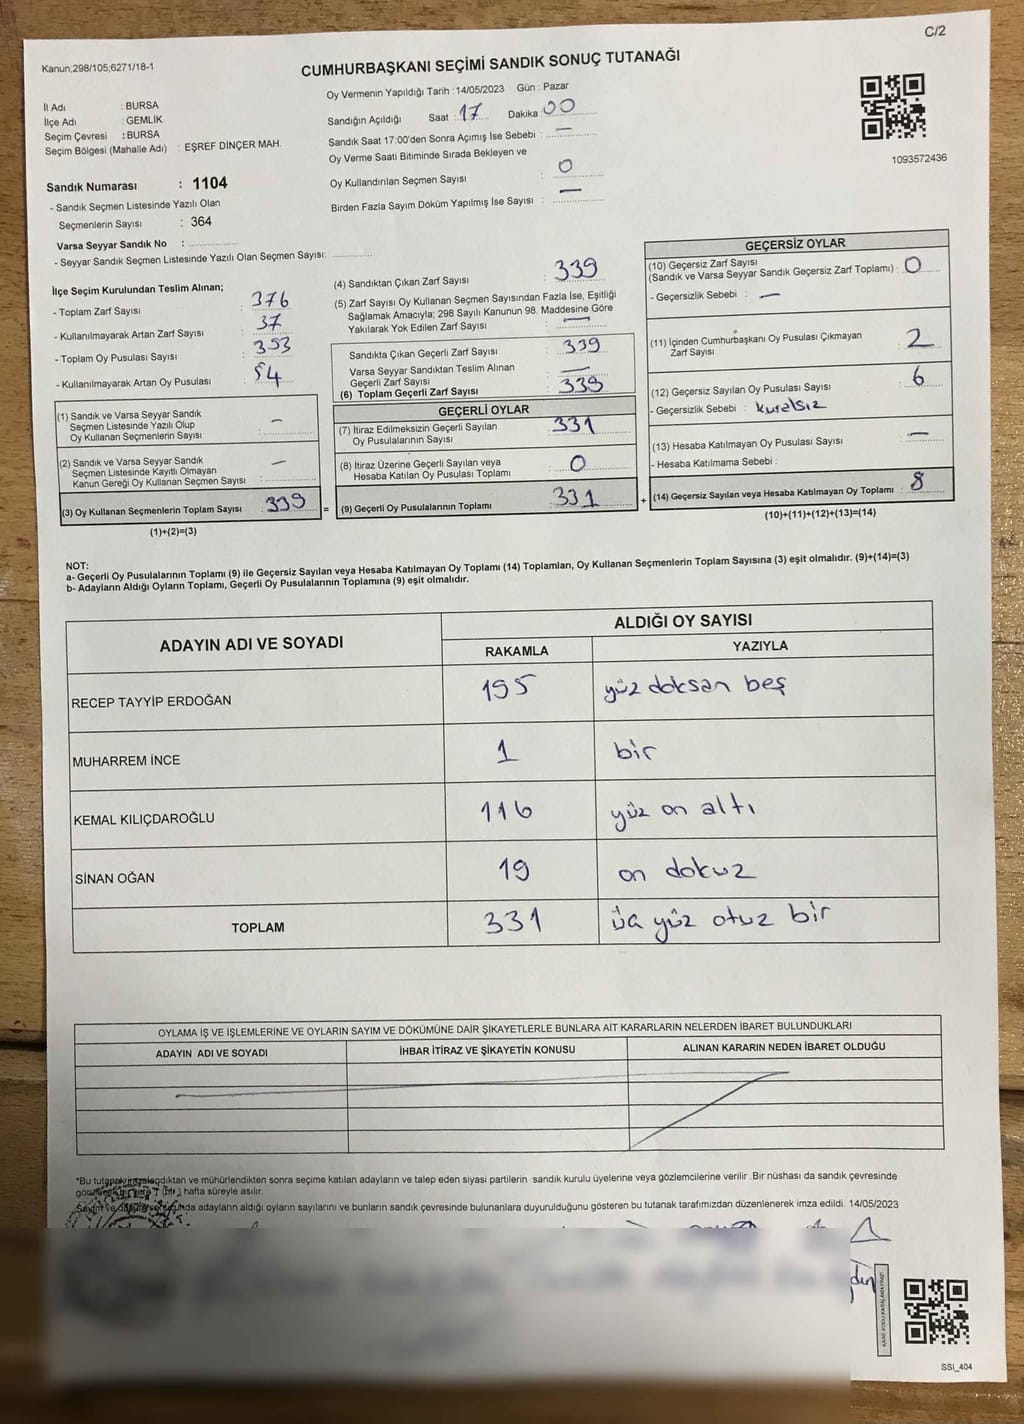 C/2
Kanun;298/105;6271/18-1
CUMHURBAŞKANI SEÇİMİ SANDIK SONUÇ TUTANAĞI
İl Adı : BURSA
İlçe Adı : GEMLİK
Seçim Çevresi : BURSA
Seçim Bölgesi (Mahalle Adı) : EŞREF DİNÇER MAH.
Sandık Numarası : 1104
- Sandık Seçmen Listesinde Yazılı Olan
Seçmenlerin Sayısı : 364
Varsa Seyyar Sandık No :
- Seyyar Sandık Seçmen Listesinde Yazılı Olan Seçmen Sayısı:
Oy Vermenin Yapıldığı Tarih : 14/05/2023 Gün : Pazar
Sandığın Açıldığı Saat : 17 Dakika : 00
Sandık Saat 17:00'den Sonra Açımış İse Sebebi : —
Oy Verme Saati Bitiminde Sırada Bekleyen ve
Oy Kullandırılan Seçmen Sayısı : 0
Birden Fazla Sayım Döküm Yapılmış İse Sayısı : —
1093572436
İlçe Seçim Kurulundan Teslim Alınan;
- Toplam Zarf Sayısı : 376
- Kullanılmayarak Artan Zarf Sayısı : 37
- Toplam Oy Pusulası Sayısı : 393
- Kullanılmayarak Artan Oy Pusulası : 54
(1) Sandık ve Varsa Seyyar Sandık
Seçmen Listesinde Yazılı Olup
Oy Kullanan Seçmenlerin Sayısı : —
(2) Sandık ve Varsa Seyyar Sandık
Seçmen Listesinde Kayıtlı Olmayan
Kanun Gereği Oy Kullanan Seçmen Sayısı : —
(3) Oy Kullanan Seçmenlerin Toplam Sayısı : 339
(1)+(2)=(3)
(4) Sandıktan Çıkan Zarf Sayısı : 339
(5) Zarf Sayısı Oy Kullanan Seçmen Sayısından Fazla İse, Eşitliği
Sağlamak Amacıyla; 298 Sayılı Kanunun 98. Maddesine Göre
Yakılarak Yok Edilen Zarf Sayısı : —
Sandıkta Çıkan Geçerli Zarf Sayısı : 339
Varsa Seyyar Sandıktan Teslim Alınan
Geçerli Zarf Sayısı : —
(6) Toplam Geçerli Zarf Sayısı : 339
GEÇERLİ OYLAR
(7) İtiraz Edilmeksizin Geçerli Sayılan
Oy Pusulalarının Sayısı : 331
(8) İtiraz Üzerine Geçerli Sayılan veya
Hesaba Katılan Oy Pusulası Toplamı : 0
= (9) Geçerli Oy Pusulalarının Toplamı : 331
GEÇERSİZ OYLAR
(10) Geçersiz Zarf Sayısı
(Sandık ve Varsa Seyyar Sandık Geçersiz Zarf Toplamı) : 0
- Geçersizlik Sebebi : —
(11) İçinden Cumhurbaşkanı Oy Pusulası Çıkmayan
Zarf Sayısı : 2
(12) Geçersiz Sayılan Oy Pusulası Sayısı : 6
- Geçersizlik Sebebi : kuralsız
(13) Hesaba Katılmayan Oy Pusulası Sayısı : —
- Hesaba Katılmama Sebebi :
+ (14) Geçersiz Sayılan veya Hesaba Katılmayan Oy Toplamı : 8
(10)+(11)+(12)+(13)=(14)
NOT:
a- Geçerli Oy Pusulalarının Toplamı (9) ile Geçersiz Sayılan veya Hesaba Katılmayan Oy Toplamı (14) Toplamları, Oy Kullanan Seçmenlerin Toplam Sayısına (3) eşit olmalıdır. (9)+(14)=(3)
b- Adayların Aldığı Oyların Toplamı, Geçerli Oy Pusulalarının Toplamına (9) eşit olmalıdır.
ADAYIN ADI VE SOYADI ALDIĞI OY SAYISI
RAKAMLA YAZIYLA
RECEP TAYYİP ERDOĞAN 195 yüz doksan beş
MUHARREM İNCE 1 bir
KEMAL KILIÇDAROĞLU 116 yüz on altı
SİNAN OĞAN 19 on dokuz
TOPLAM 331 üç yüz otuz bir
OYLAMA İŞ VE İŞLEMLERİNE VE OYLARIN SAYIM VE DÖKÜMÜNE DAİR ŞİKAYETLERLE BUNLARA AİT KARARLARIN NELERDEN İBARET BULUNDUKLARI
ADAYIN ADI VE SOYADI İHBAR İTİRAZ VE ŞİKAYETİN KONUSU ALINAN KARARIN NEDEN İBARET OLDUĞU
*Bu tutanak imzalandıktan ve mühürlendikten sonra seçime katılan adayların ve talep eden siyasi partilerin sandık kurulu üyelerine veya gözlemcilerine verilir. Bir nüshası da sandık çevresinde
(bir) hafta süreyle asılır.
Sayım ve döküm sonunda adayların aldığı oyların sayılarını ve bunların sandık çevresinde bulunanlara duyurulduğunu gösteren bu tutanak tarafımızdan düzenlenerek imza edildi. 14/05/2023
SSI_404